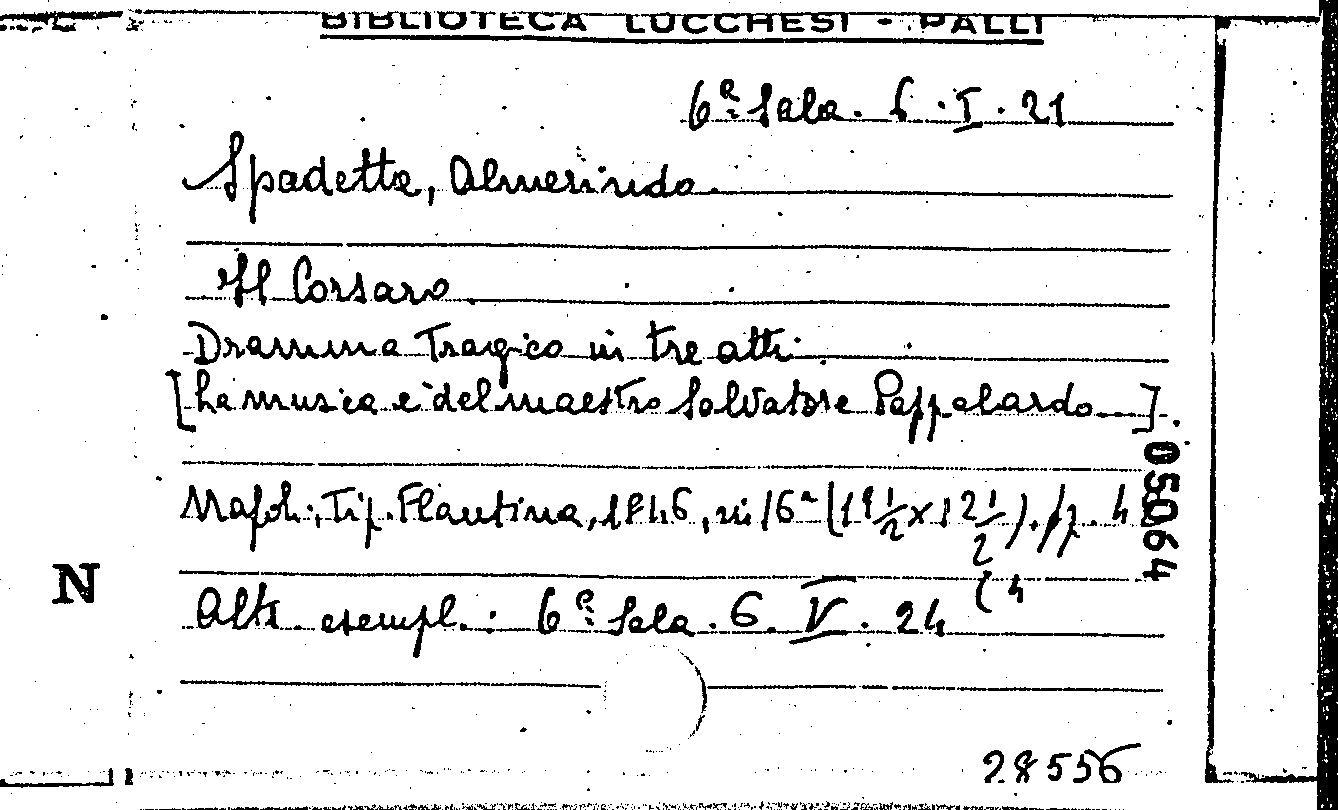 BIBLIOTECA LUCCHESI - PALLI
6ª Sala. 6. I. 21
Spadetta, Almerindo.
Il Corsaro.
Dramma Tragico in tre atti.
[La musica è del maestro Salvatore Pappalardo...]
Napoli, Tip. Flautina, 1846, in 16° (19 1/2 x 12 1/2). pp. 4
(4
Altri esempl.: 6ª Sala. 6. V. 24
05064
N
28556